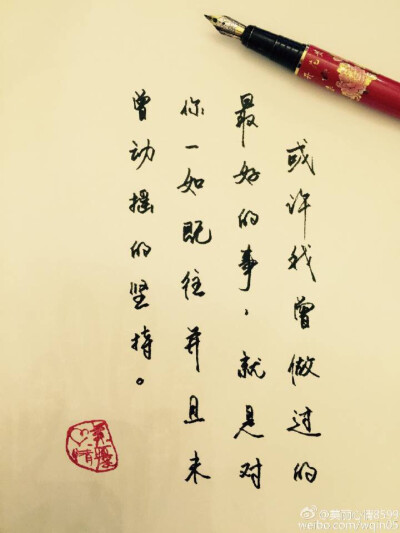 或许我曾做过的
最好的事，就是对
你一如既往并且未
曾动摇的坚持。